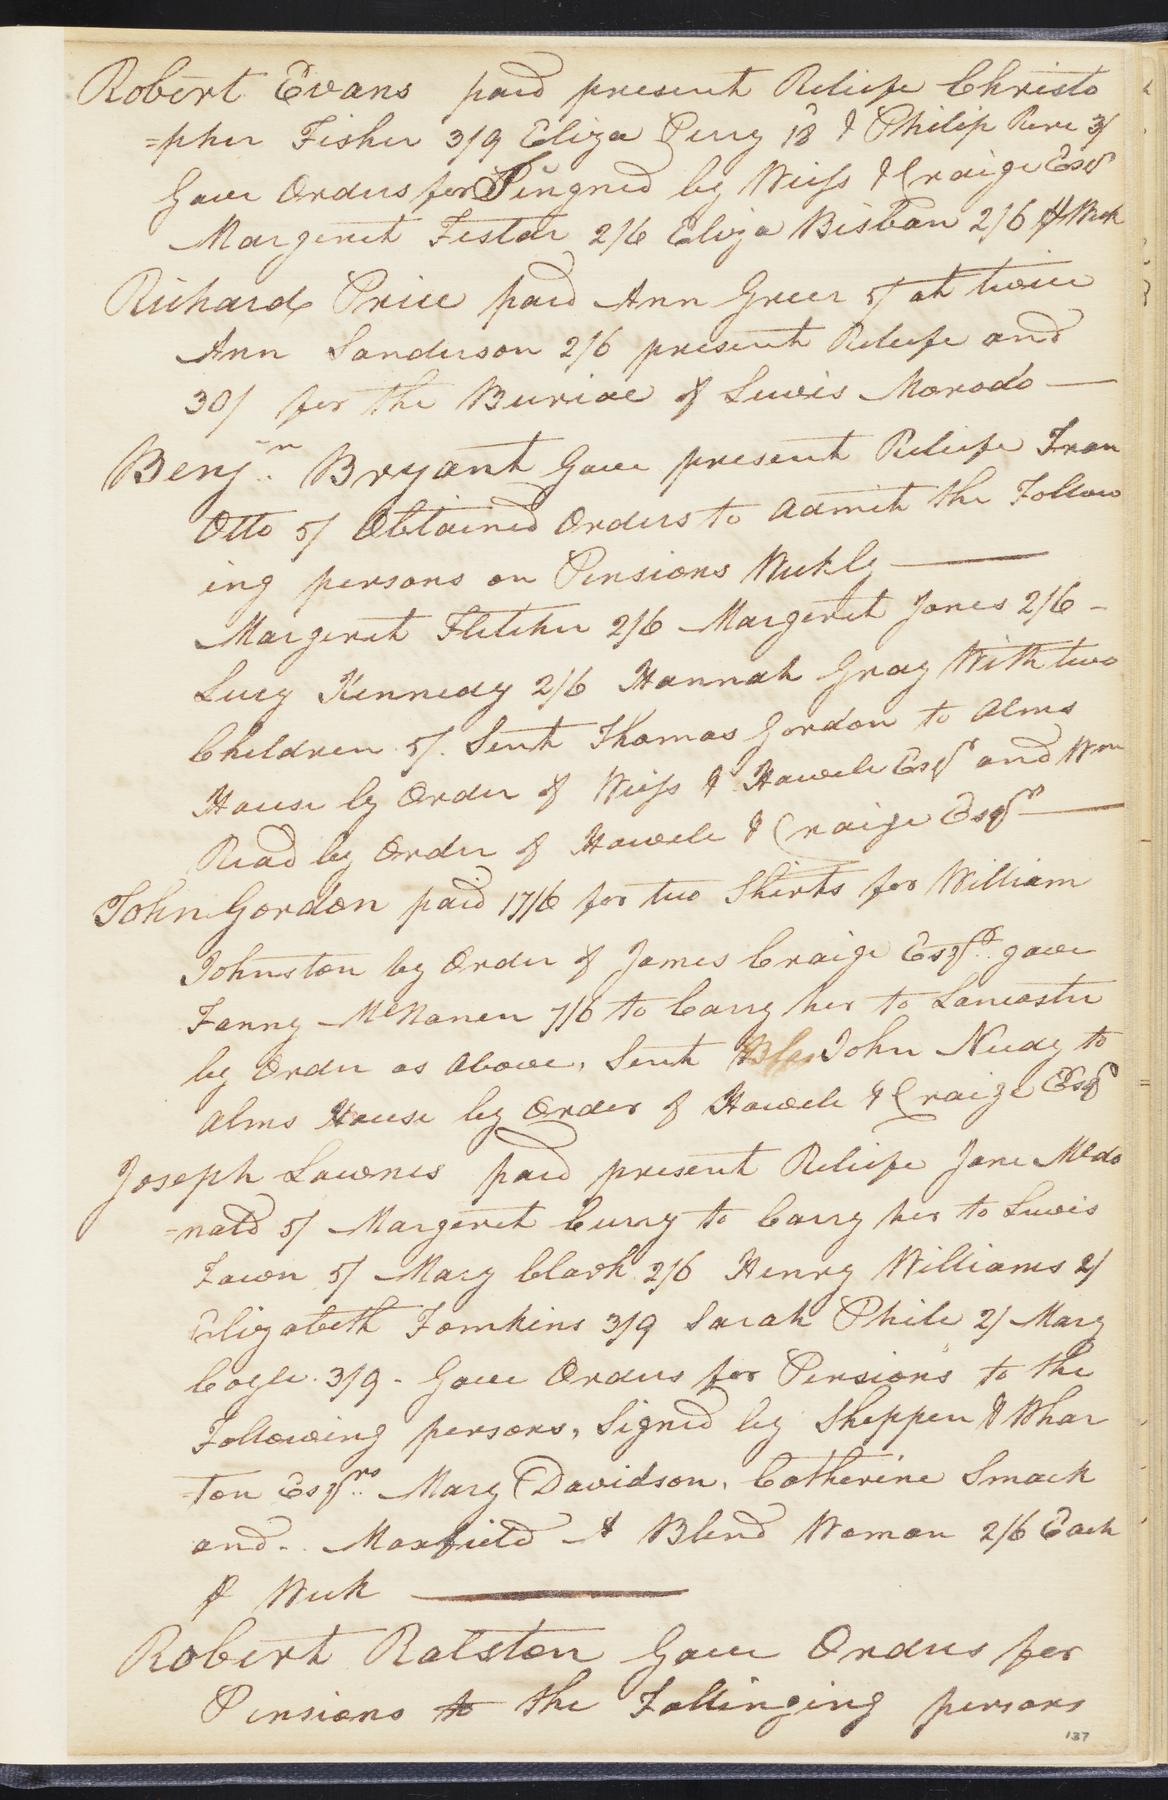 Robert Evans paid present Reliefe Christo
=pher Fisher 3/9 Eliza Perry 18 & Philip Rere 3/
Gave Orders for Singned by Weiss & Craige Esqr
Margeret Festar 2/6 Eliza Bisban 2/6 ⅌ Week
Richard Price paid Ann Greer 5/ at twice
Ann Sanderson 2/6 present Reliefe and
30/ for the Buriae of Lewis Marodo —
Benjn. Bryant Gave present Reliefe Fran
Otto 5/ Obtained Orders to Admit the Follow
ing persons on Pensions Weekly —
Margeret Fletcher 2/6 Margeret Jones 2/6 -
Lucy Kennedy 2/6 Hannah Gray With two
Children 5/. Sent Thomas Gordon to Alms
House by Order of Weiss & Howele Esqr and Wm
Read by Order of Howele & Craige Esqrs —
John Gordon paid 17/6 for two Shirts for William
Johnston by Order of James Craige Esqr. gave
Fanny McNanen 7/6 to Carry her to Lancaster
by Order as Above, Sent John Needy to
Alms House by Order of Howele & Craige Esqr
Joseph Lawnes paid present Reliefe Jane Mcdo
=nald 5/ Margeret Curry to Carry her to Lewis
Town 5/ Mary Clark 2/6 Henry Williams 2/
Elizabeth Tomkins 3/9 Sarah Phile 2/ Mary
Cogle 3/9 - Gave Orders for Pensions to the
Following persons, Signed by Sheppen & Whar
=ton Esqrs. Mary Davidson, Catherine Smack
and .. Maxfield A Blind Woman 2/6 Each
⅌ Week —
Robert Ralston Gave Orders for
Pensions to the Follinging persons
137